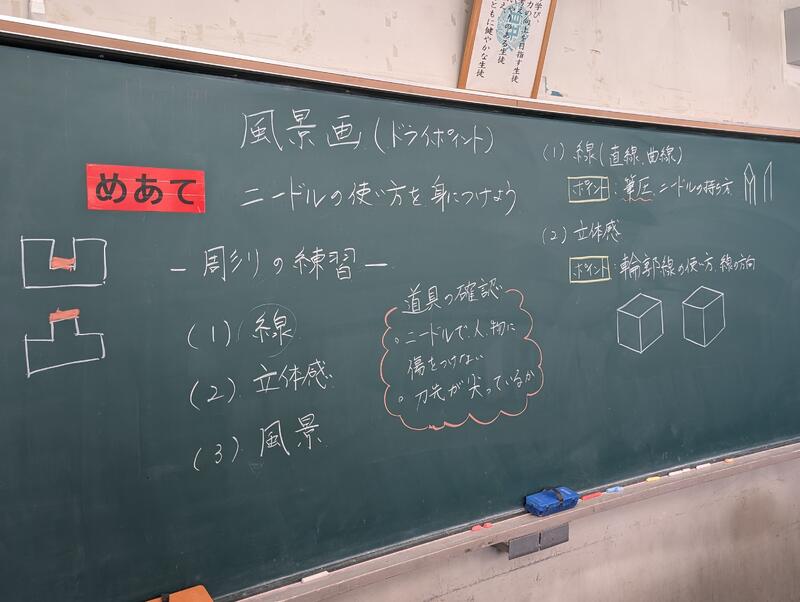 学び、
力の向上を目指す生徒
やりのある生徒
ともに健やかな生徒
風景画(ドライポイント)
めあて
ニードルの使い方を身につけよう
－周彡リの練習－
(1) 線
(2) 立体感
(3) 風景
道具の確認
。ニードルで、人、物に
傷をつけない
。刀先が尖っているか
(1) 線(直線、曲線)
ポイント:筆圧、ニードルの持ち方
(2) 立体感
ポイント:輪郭線の使い方、線の方向